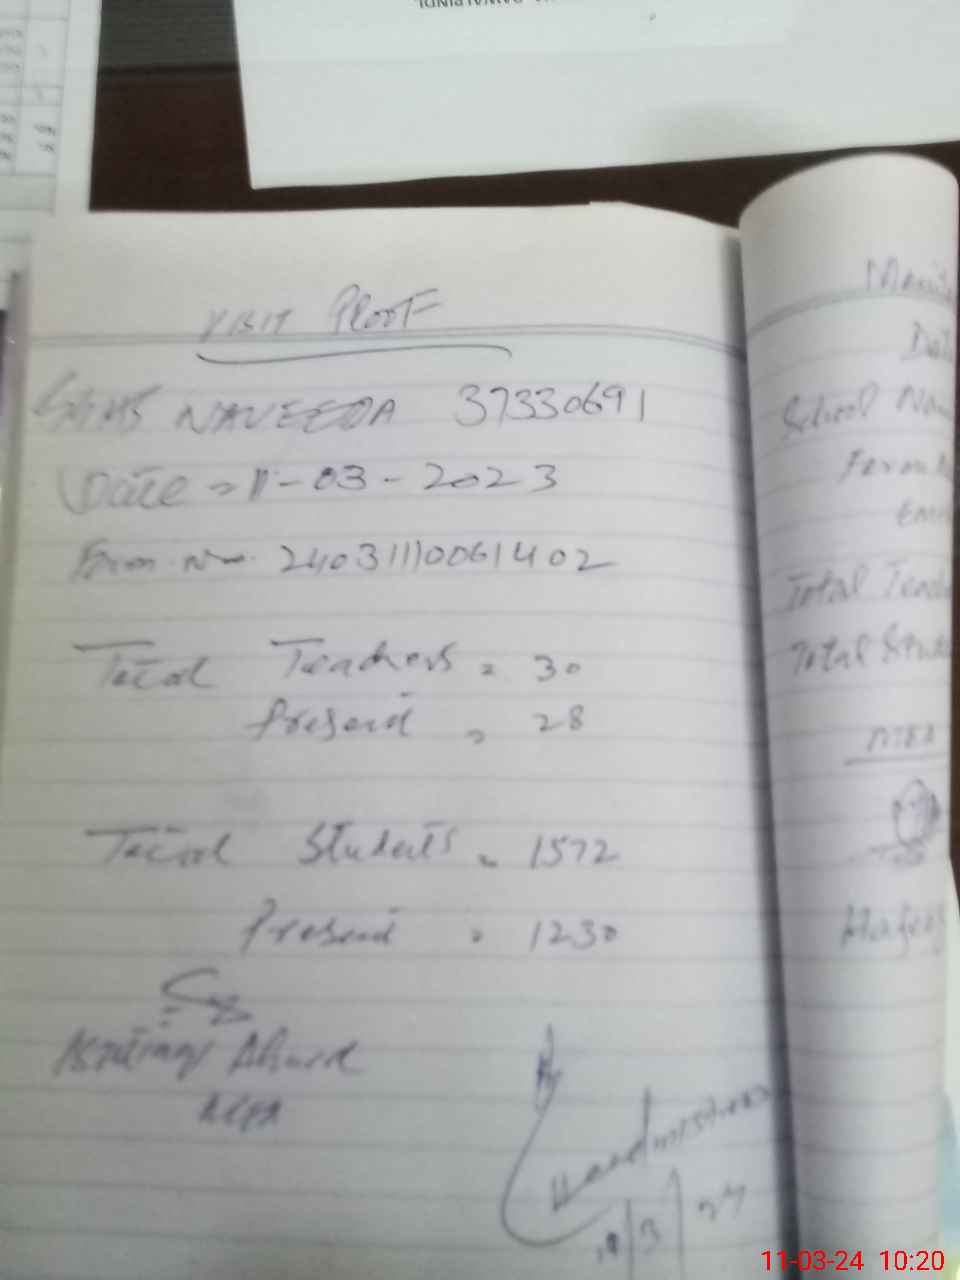 RAWALPINDI.
VISIT PROOF
GGHS NAVEEDA 37330691
Date = 11-03-2023
Form. No. 24031110061402
Total Teachers = 30
Present = 28
Total Students = 1572
Present = 1230
Ishtiaq Ahmed
Headmistress
11/3/24
Date
School Nam
Form N
Total Teach
Total Stude
11-03-24 10:20